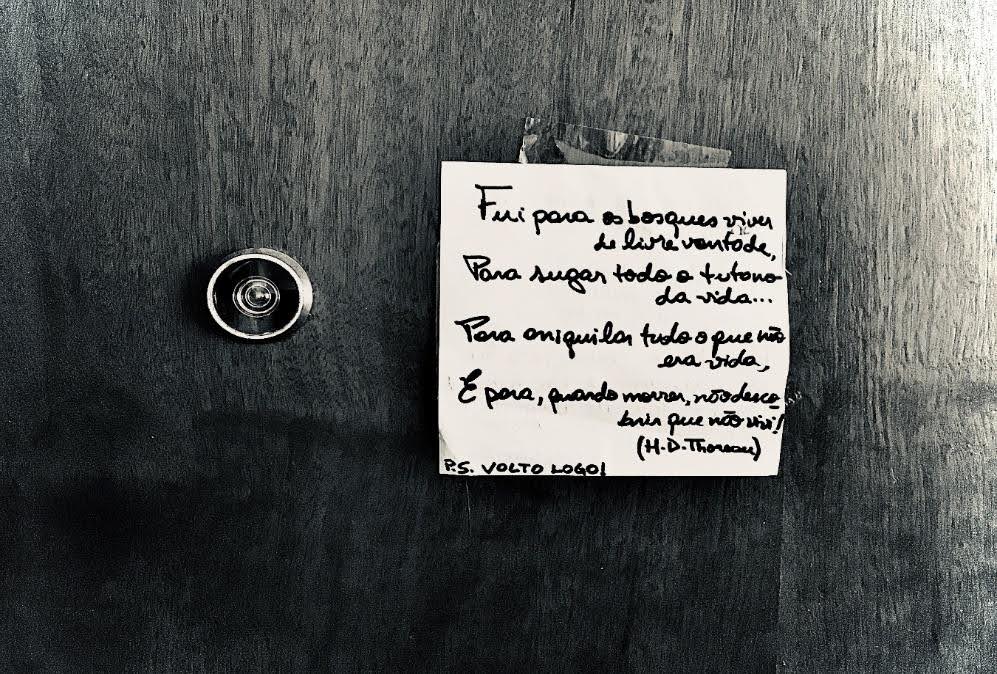 Fui para os bosques viver
de livre vontade,
Para sugar todo o tutano
da vida...
Para aniquilar tudo o que não
era vida,
E para, quando morrer, não desco
brir que não vivi!
(H.D.Thoreau)
P.S. VOLTO LOGO!